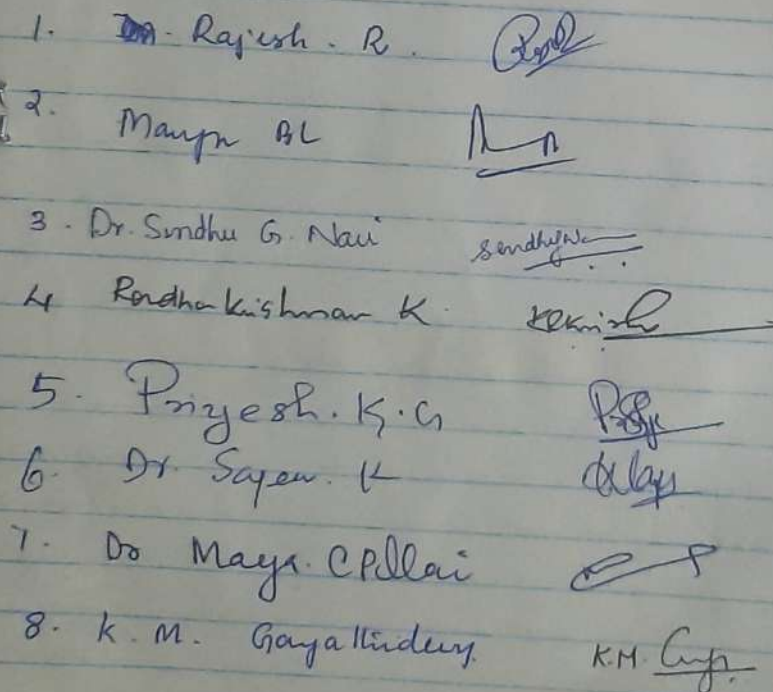 1. Rajesh. R.
2. Manju BL
3. Dr. Sindhu G. Nair sindhugn
4 Radhakrishnan K. KKrish
5. Priyesh. K. G
6. Dr. Sajeev. K
7. Dr Maya. C Pillai
8. K. M. Gayathridevy. K.M.